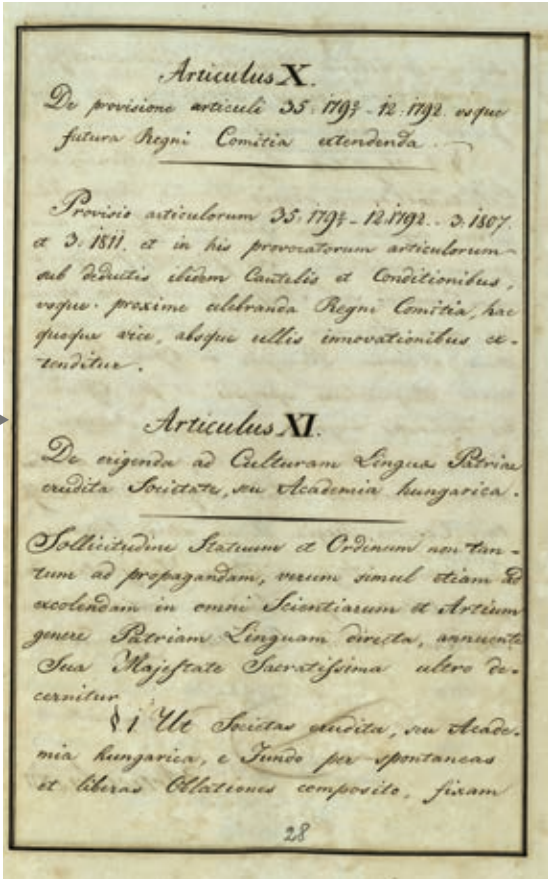 Articulus X.
De provisione articuli 35: 179⅔ - 12: 1792. usque
futura Regni Comitia extendenda.
Provisio articulorum 35: 179⅔ - 12: 1792. - 3: 1807.
et 3: 1811. et in his provocatorum articulorum
sub deductis ibidem Cautelis et Conditionibus,
usque proxime celebranda Regni Comitia, hac
quoque vice, absque ullis innovationibus ex-
tenditur.
Articulus XI.
De erigenda ad Culturam Linguæ Patriæ
erudita Societate, seu Academia hungarica.
Sollicitudine Statuum et Ordinum non tan-
tum ad propagandam, verum simul etiam ad
excolendam in omni Scientiarum et Artium
genere Patriam Linguam directa, annuente
Sua Majestate Sacratissima ultro de-
cernitur
§ 1 Ut Societas erudita, seu Acade-
mia hungarica, e Fundo per spontaneas
et liberas Oblationes composito, fixam
28